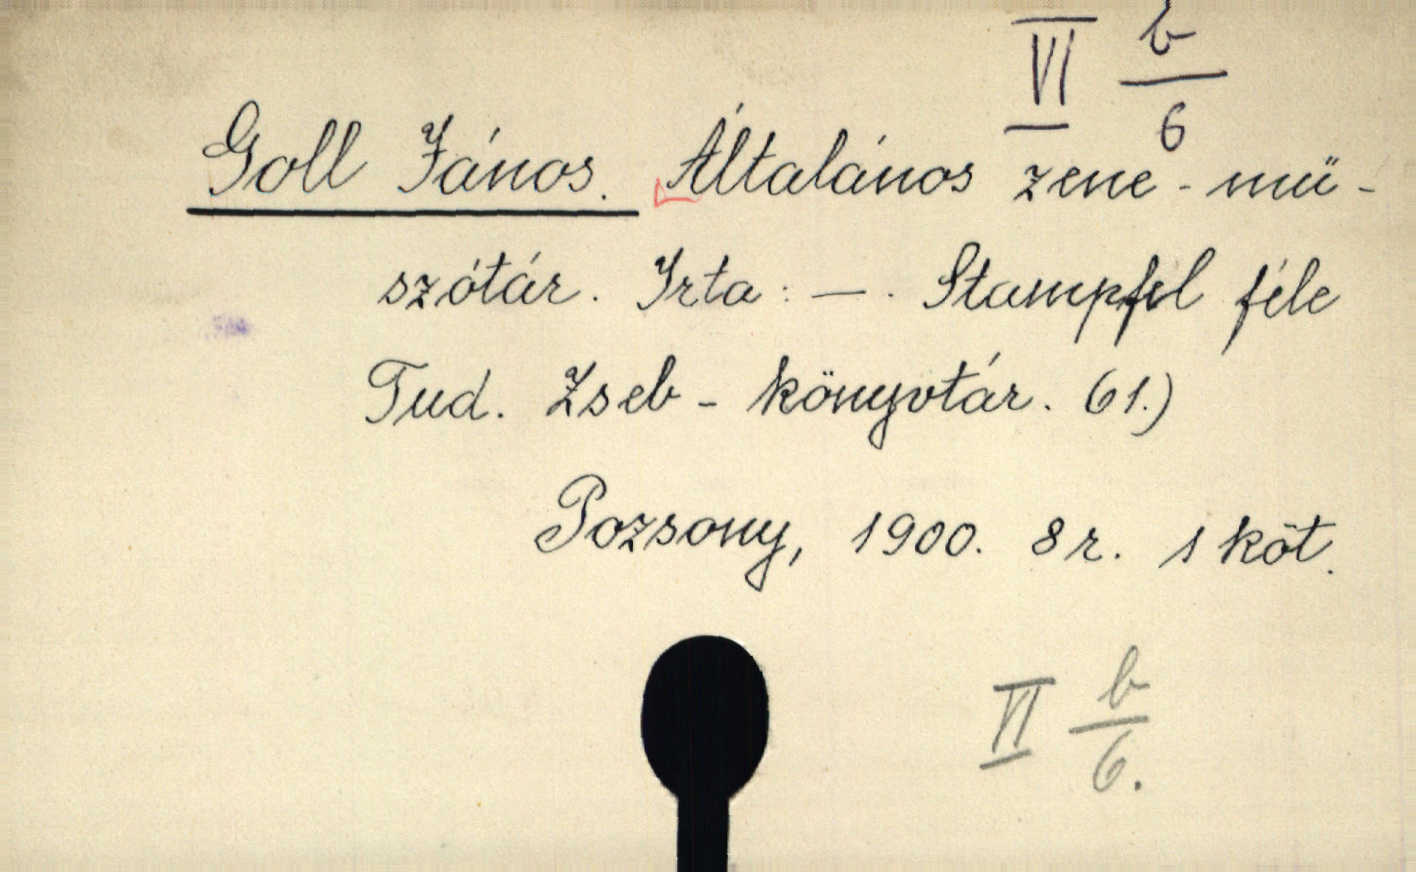 VI b/6
Goll János. Általános zene-mű-
szótár. Irta: —. Stampfel féle
Tud. Zseb-könyvtár. 61.)
Pozsony, 1900. 8r. 1 köt.
VI b/6.